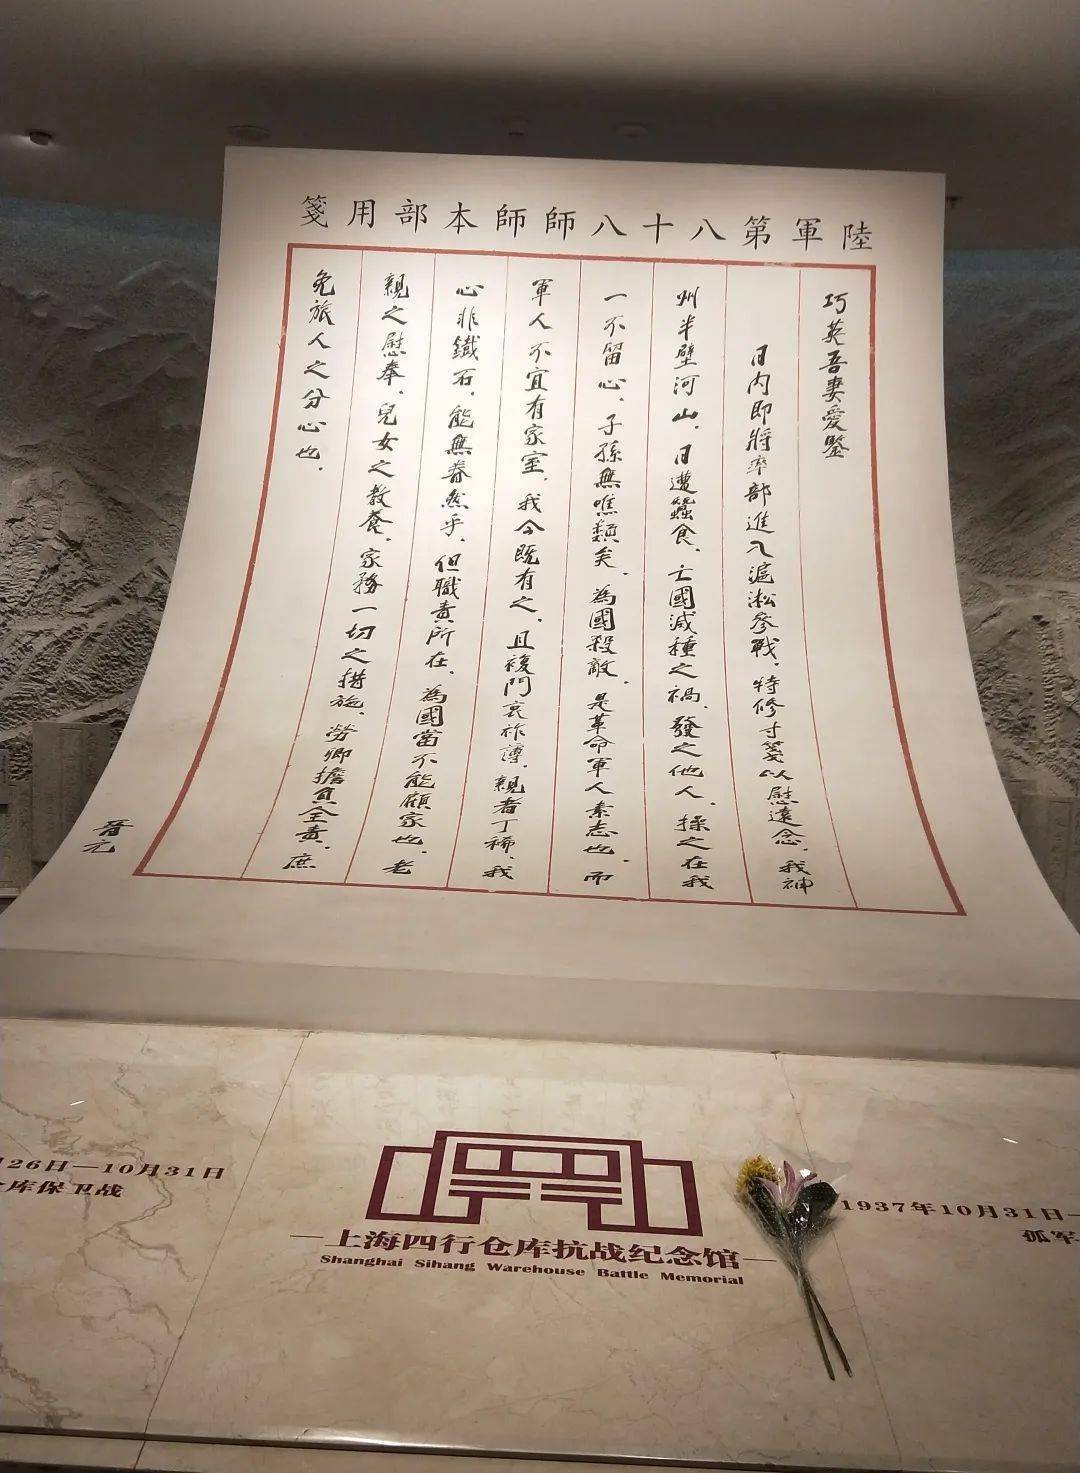 陸軍第八十八師師本部用箋
巧英吾妻愛鑒
日内即將率部進入滬淞參戰．特修寸箋以慰遠念．我神
州半壁河山．日遭蠶食．亡國滅種之禍．發之他人．操之在我
一不留心．子孫無噍類矣．為國殺敵．是革命軍人素志也．而
軍人不宜有家室．我今既有之．且複門衰祚薄．親者丁稀．我
心非鐵石．能無眷然乎．但職責所在．為國當不能顧家也．老
親之慰奉．兒女之教養．家務一切之措施．勞卿擔負全責．庶
免旅人之分心也．
晉元
26日—10月31日
库保卫战
上海四行仓库抗战纪念馆
Shanghai Sihang Warehouse Battle Memorial
1937年10月31日—
孤军